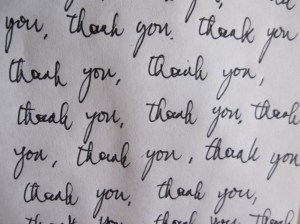 you, thank you. thank you
thank you, thank you,
thank you, thank you, thank
you, thank you, thank you
thank you, thank you,
thank you, thank you, thank